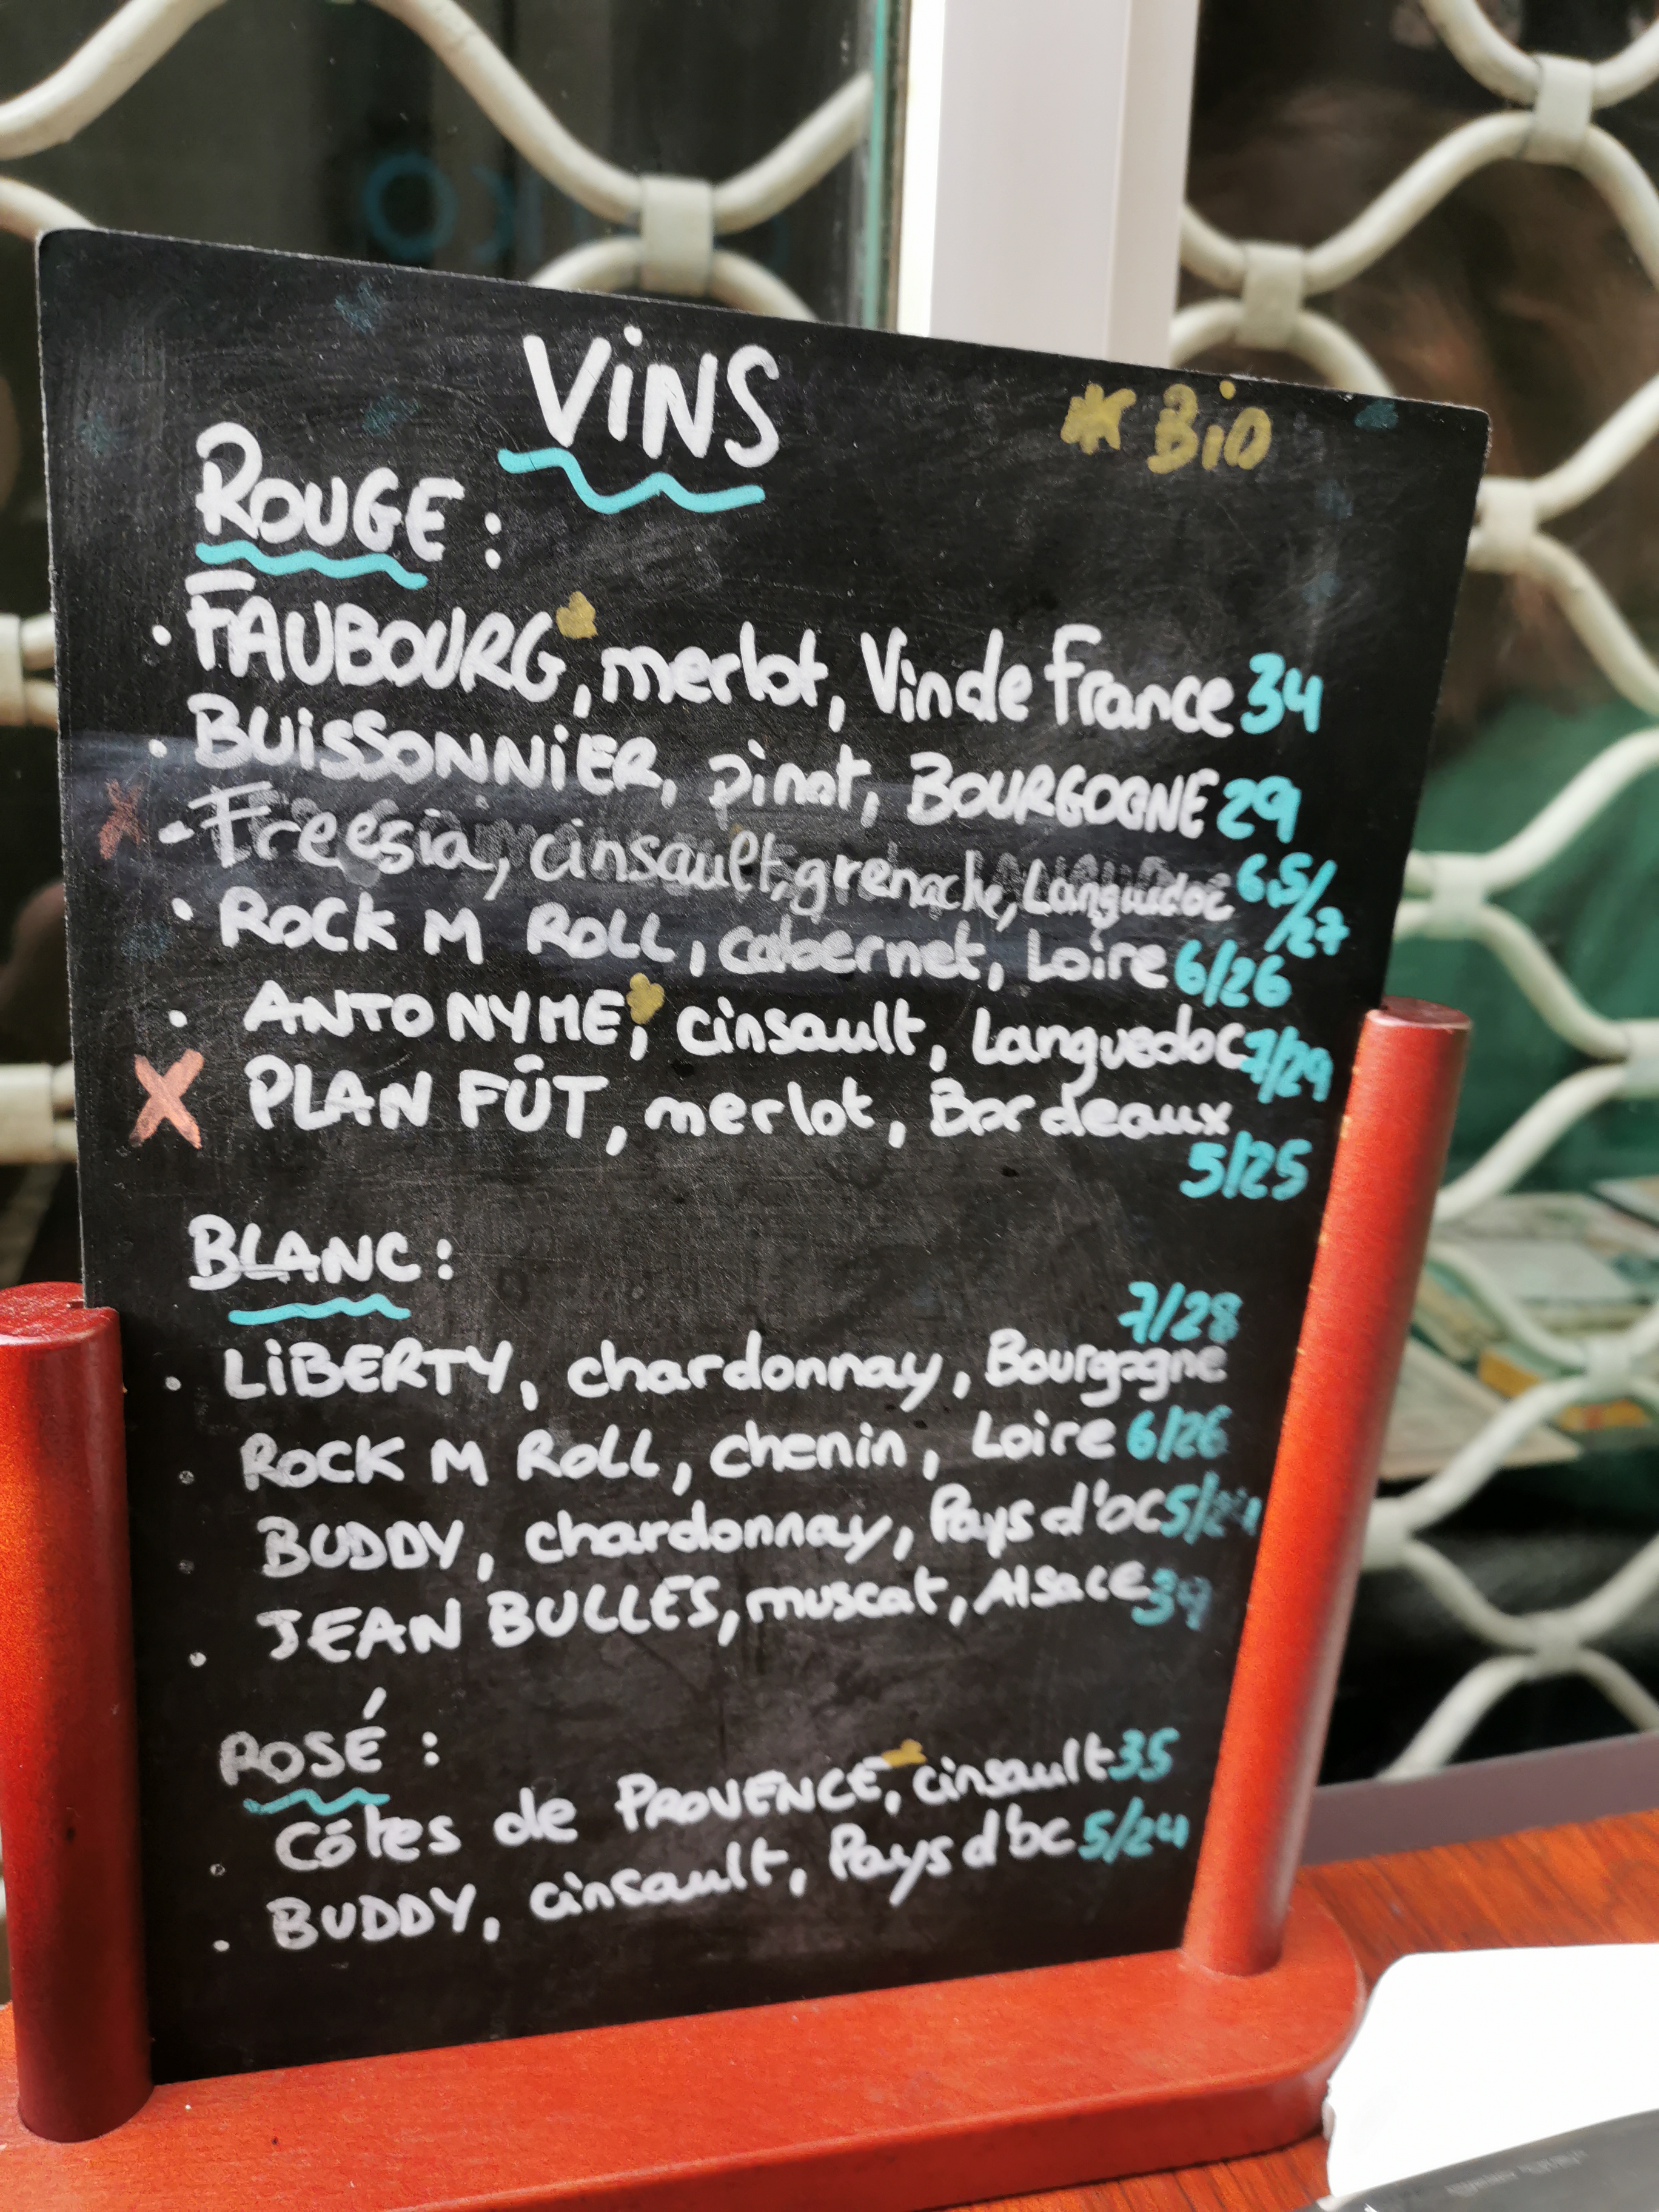 ViNS
* BiO
ROUGE :
• FAUBOURG*, merlot, Vin de France 34
• BUiSSONNiER, pinot, BOURGOGNE 29
X - Freesia, cinsault, grenache, Languedoc 6,5/
/27
• ROCK M ROLL, cabernet, Loire 6/26
• ANTONYME*, cinsault, Languedoc 7/29
X PLAN FÛT, merlot, Bordeaux
5/25
BLANC :
7/28
• LiBERTY, chardonnay, Bourgogne
• ROCK M ROLL, chenin, Loire 6/26
• BUDDY, chardonnay, Pays d'oc 5/24
• JEAN BULLES, muscat, Alsace 39
ROSÉ :
• Côtes de PROVENCE*, cinsault 35
• BUDDY, cinsault, Pays d'oc 5/24